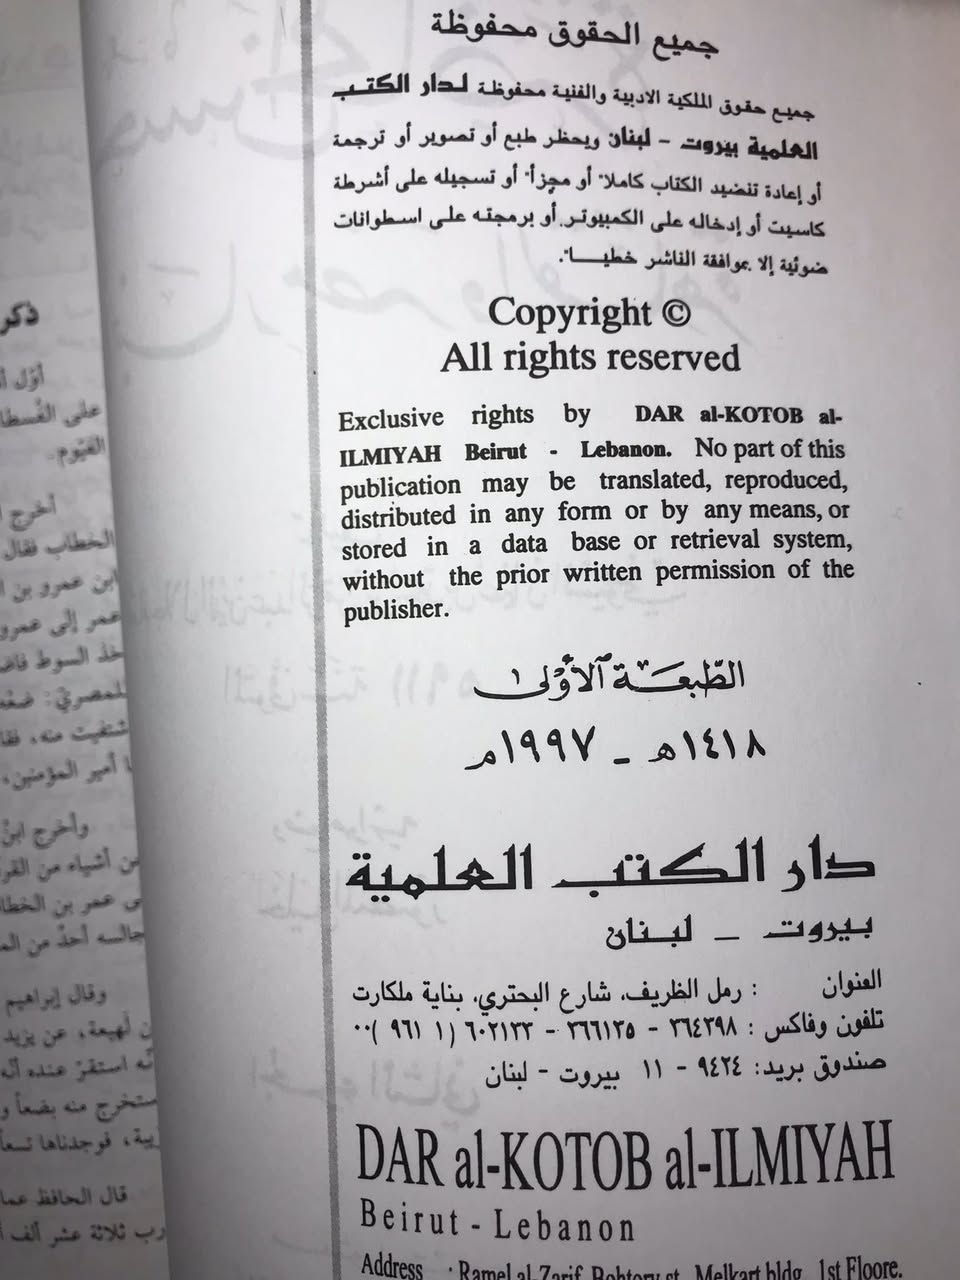 جميع الحقوق محفوظة
جميع حقوق الملكية الادبية والفنية محفوظة لدار الكتب
العلمية بيروت - لبنان ويحظر طبع أو تصوير أو ترجمة
أو إعادة تنضيد الكتاب كاملاً أو مجزأ أو تسجيله على أشرطة
كاسيت أو إدخاله على الكمبيوتر أو برمجته على اسطوانات
ضوئية إلا بموافقة الناشر خطيـــاً.
Copyright ©
All rights reserved
Exclusive rights by DAR al-KOTOB al-
ILMIYAH Beirut - Lebanon. No part of this
publication may be translated, reproduced,
distributed in any form or by any means, or
stored in a data base or retrieval system,
without the prior written permission of the
publisher.
الطّبعَة الأولى
١٤١٨هـ - ١٩٩٧م
دار الكتب العلمية
بيروت - لبنان
العنوان : رمل الظريف، شارع البحتري، بناية ملكارت
تلفون وفاكس : ٣٦٤٣٩٨ - ٣٦٦١٣٥ - ٦٠٢١٣٣ (١ ٩٦١)٠٠
صندوق بريد: ٩٤٢٤ - ١١ بيروت - لبنان
DAR al-KOTOB al-ILMIYAH
Beirut - Lebanon
Address : Ramel al-Zarif, Bohtory st., Melkart bldg., 1st Floore.
ذكر
أوّل
على الفسطا
الفيّوم.
أخرج
الخطاب فقال
ابن عمرو بن
عمر إلى عمرو
خذ السوط فاض
للمصريّ: ضعْه
شتفيت منه، فقا
أمير المؤمنين،
وأخرج ابن
من أشياء من القر
عمر بن الخطا
جالسه أحدٌ من الم
وقال إبراهيم
ن لهيعة، عن يزيد
أنّه استقرّ عنده أنّه
ستخرج منه بضعاً و
رية، فوجدناها تسعاً
قال الحافظ عما
رب ثلاثة عشر ألف